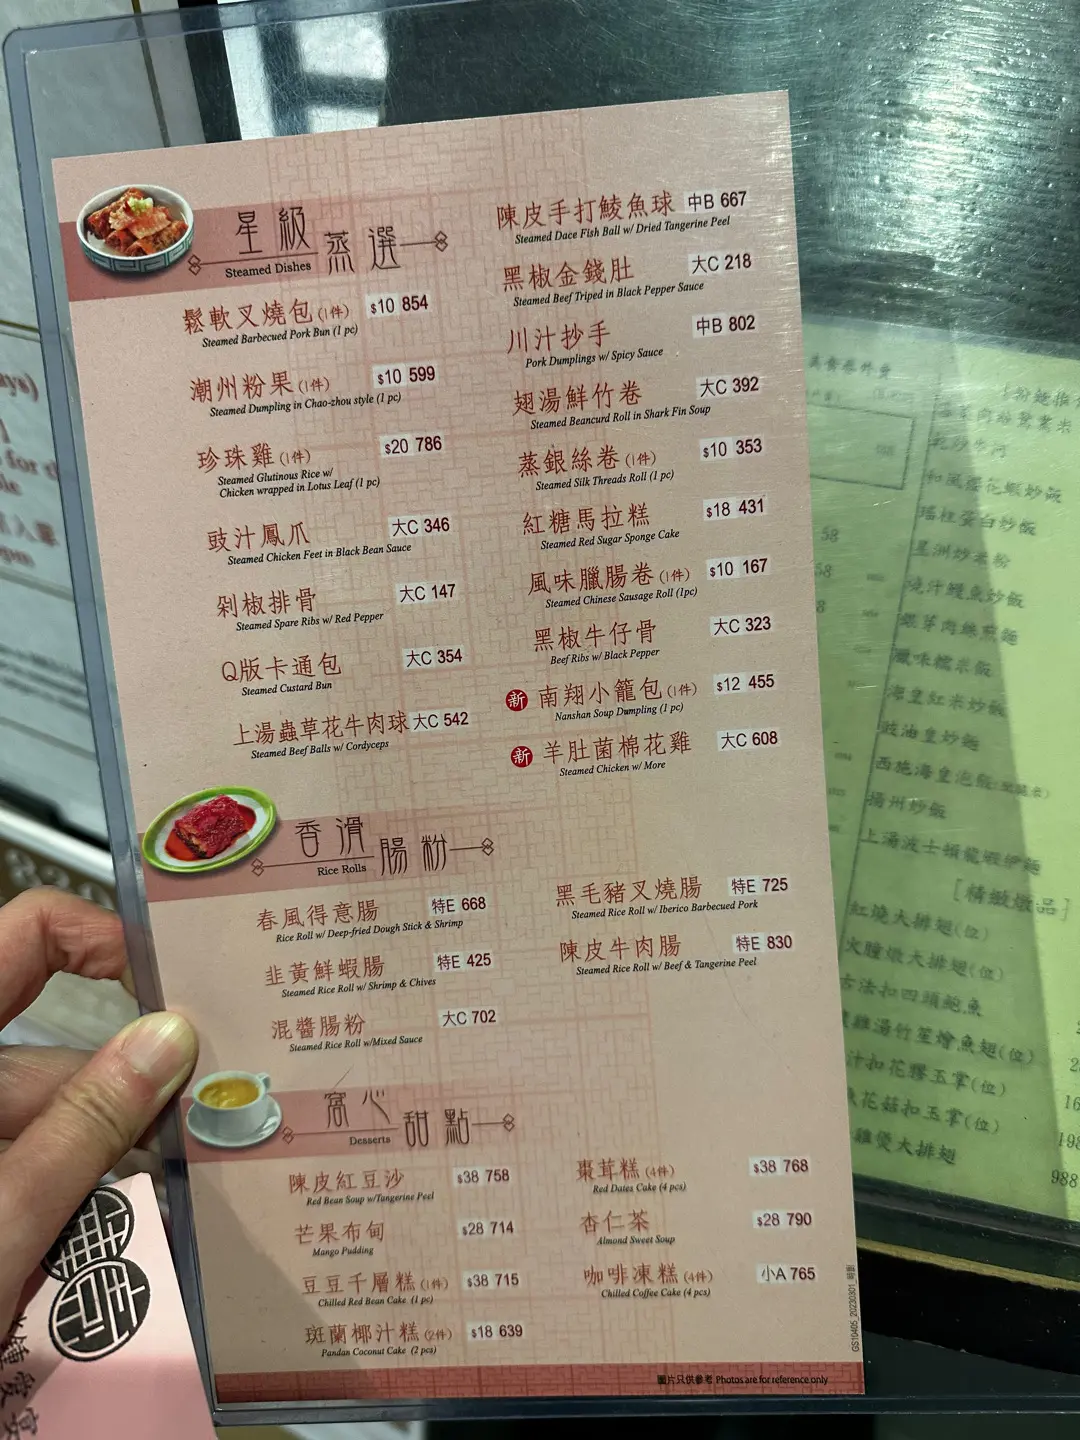 星級蒸選
Steamed Dishes
鬆軟叉燒包(1件) $10 854
Steamed Barbecued Pork Bun (1 pc)
潮州粉果(1件) $10 599
Steamed Dumpling in Chao-zhou style (1 pc)
珍珠雞(1件) $20 786
Steamed Glutinous Rice w/
Chicken wrapped in Lotus Leaf (1 pc)
豉汁鳳爪 大C 346
Steamed Chicken Feet in Black Bean Sauce
剁椒排骨 大C 147
Steamed Spare Ribs w/ Red Pepper
Q版卡通包 大C 354
Steamed Custard Bun
上湯蟲草花牛肉球 大C 542
Steamed Beef Balls w/ Cordyceps
陳皮手打鯪魚球 中B 667
Steamed Dace Fish Ball w/ Dried Tangerine Peel
黑椒金錢肚 大C 218
Steamed Beef Triped in Black Pepper Sauce
川汁抄手 中B 802
Pork Dumplings w/ Spicy Sauce
翅湯鮮竹卷 大C 392
Steamed Beancurd Roll in Shark Fin Soup
蒸銀絲卷(1件) $10 353
Steamed Silk Threads Roll (1 pc)
紅糖馬拉糕 $18 431
Steamed Red Sugar Sponge Cake
風味臘腸卷(1件) $10 167
Steamed Chinese Sausage Roll (1pc)
黑椒牛仔骨 大C 323
Beef Ribs w/ Black Pepper
新 南翔小籠包(1件) $12 455
Nanshan Soup Dumpling (1 pc)
新 羊肚菌棉花雞 大C 608
Steamed Chicken w/ More
香滑腸粉
Rice Rolls
春風得意腸 特E 668
Rice Roll w/ Deep-fried Dough Stick & Shrimp
韭黃鮮蝦腸 特E 425
Steamed Rice Roll w/ Shrimp & Chives
混醬腸粉 大C 702
Steamed Rice Roll w/Mixed Sauce
黑毛豬叉燒腸 特E 725
Steamed Rice Roll w/ Iberico Barbecued Pork
陳皮牛肉腸 特E 830
Steamed Rice Roll w/ Beef & Tangerine Peel
窩心甜點
Desserts
陳皮紅豆沙 $38 758
Red Bean Soup w/Tangerine Peel
芒果布甸 $28 714
Mango Pudding
豆豆千層糕(1件) $38 715
Chilled Red Bean Cake (1 pc)
斑蘭椰汁糕(2件) $18 639
Pandan Coconut Cake (2 pcs)
棗茸糕(4件) $38 768
Red Dates Cake (4 pcs)
杏仁茶 $28 790
Almond Sweet Soup
咖啡凍糕(4件) 小A 765
Chilled Coffee Cake (4 pcs)
圖片只供參考 Photos are for reference only
乾炒牛河
瑤柱蛋白炒飯
星洲炒米粉
燒汁鰻魚炒飯
銀芽肉絲煎麵
臘味糯米飯
海皇紅米炒飯
豉油皇炒麵
揚州炒飯
上湯波士頓龍蝦伊麵
[精緻燉品]
紅燒大排翅(位)
火膧燉大排翅(位)
古法扣四頭鮑魚
雞湯竹笙燴魚翅(位)
汁扣花膠玉掌(位)
花菇扣玉掌(位)
雞煲大排翅
988